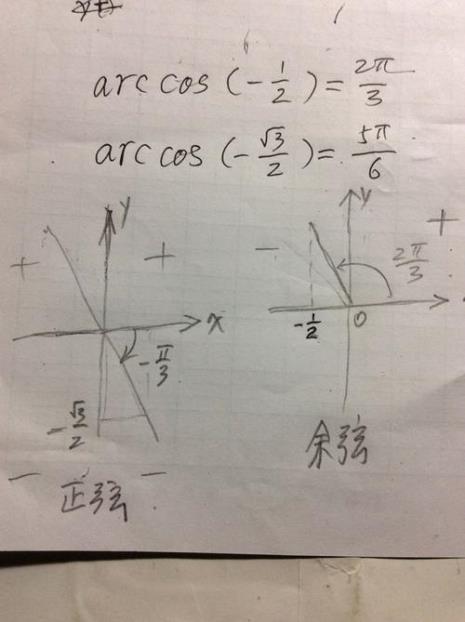 arc cos (-1/2) = 2π/3
arc cos (-√3/2) = 5π/6
y
+
+
x
-π/3
-√3/2
-
-
正弦
y
+
-
2π/3
-1/2
0
余弦